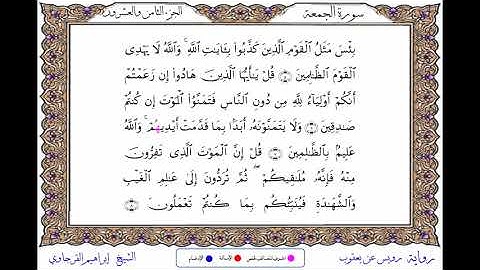 سورة الجمعة
الجزء الثامن والعشرون
بِئْسَ مَثَلُ الْقَوْمِ الَّذِينَ كَذَّبُوا بِـَٔايَتِ اللَّهِ وَاللَّهُ لَا يَهْدِى
الْقَوْمَ الظَّلِمِينَ ۝ قُلْ يَـٰٓأَيُّهَا الَّذِينَ هَادُوا إِن زَعَمْتُمْ
أَنَّكُمْ أَوْلِيَآءُ لِلَّهِ مِن دُونِ النَّاسِ فَتَمَنَّوُا الْمَوْتَ إِن كُنتُمْ
صَـٰدِقِينَ ۝ وَلَا يَتَمَنَّوْنَهُۥٓ أَبَدًۢا بِمَا قَدَّمَتْ أَيْدِيهُمْ وَاللَّهُ
عَلِيمٌۢ بِالظَّـٰلِمِينَ ۝ قُلْ إِنَّ الْمَوْتَ الَّذِى تَفِرُّونَ
مِنْهُ فَإِنَّهُۥ مُلَـٰقِيكُمْ ثُمَّ تُرَدُّونَ إِلَىٰ عَـٰلِمِ الْغَيْبِ
وَالشَّهَـٰدَةِ فَيُنَبِّئُكُم بِمَا كُنتُمْ تَعْمَلُونَ
رواية رويس عن يعقوب
الإمالة
الإدغام
الشيخ إبراهيم الفرجاوي